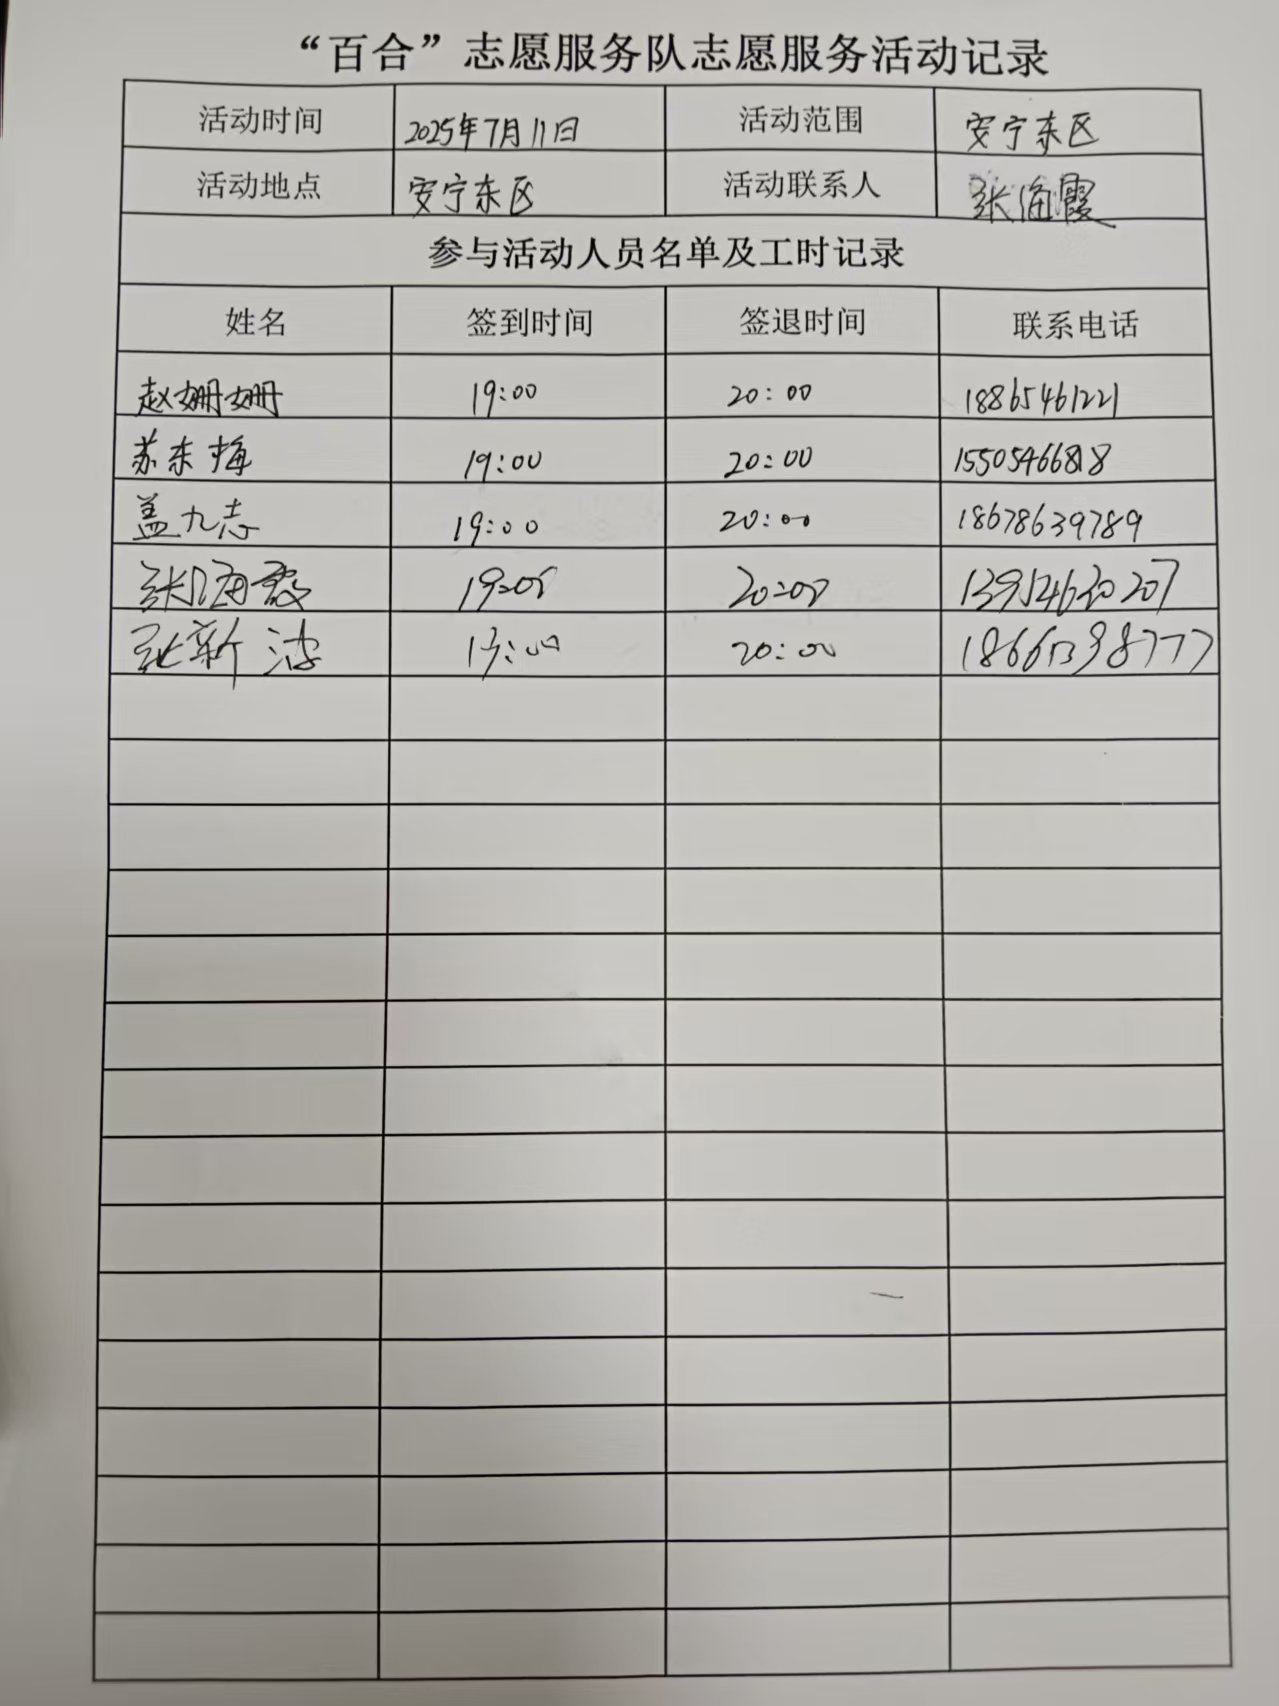 “百合”志愿服务队志愿服务活动记录
活动时间 2025年7月11日 活动范围 安宁东区
活动地点 安宁东区 活动联系人 张海霞
参与活动人员名单及工时记录
姓名 签到时间 签退时间 联系电话
赵姗姗 19:00 20:00 18865461221
苏东梅 19:00 20:00 15505466818
盖九志 19:00 20:00 18678639789
张海霞 19:00 20:00
张新 20:00